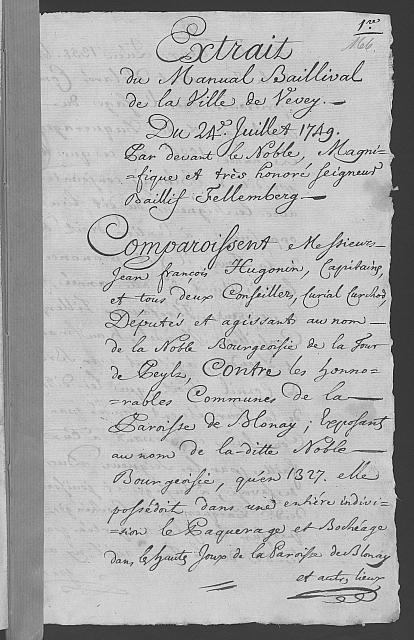 1.re
166.
Extrait
du Manual Baillival
de la Ville de Vevey.—
Du 24.e Juillet 1749.
Par devant le Noble, Magni=
=fique et très honoré Seigneur
Baillif Fellemberg—
Comparoissent Messieurs
Jean françois Hugonin, Capitaine,
et tous deux Conseillers, Curial Curchod,
Députés et agissant au nom—
de la Noble Bourgeoisie de la Tour
de Peylz, Contre les honno=
=rables Communes de la—
Paroisse de Blonay; Exposant
au nom de la-ditte Noble—
Bourgeoisie, qu'en 1327. elle
possédoit dans une entière indivi=
=sion le Paquerage et Bochéage
dans les hauts Joux de la Paroisse de Blonay
et autres lieux